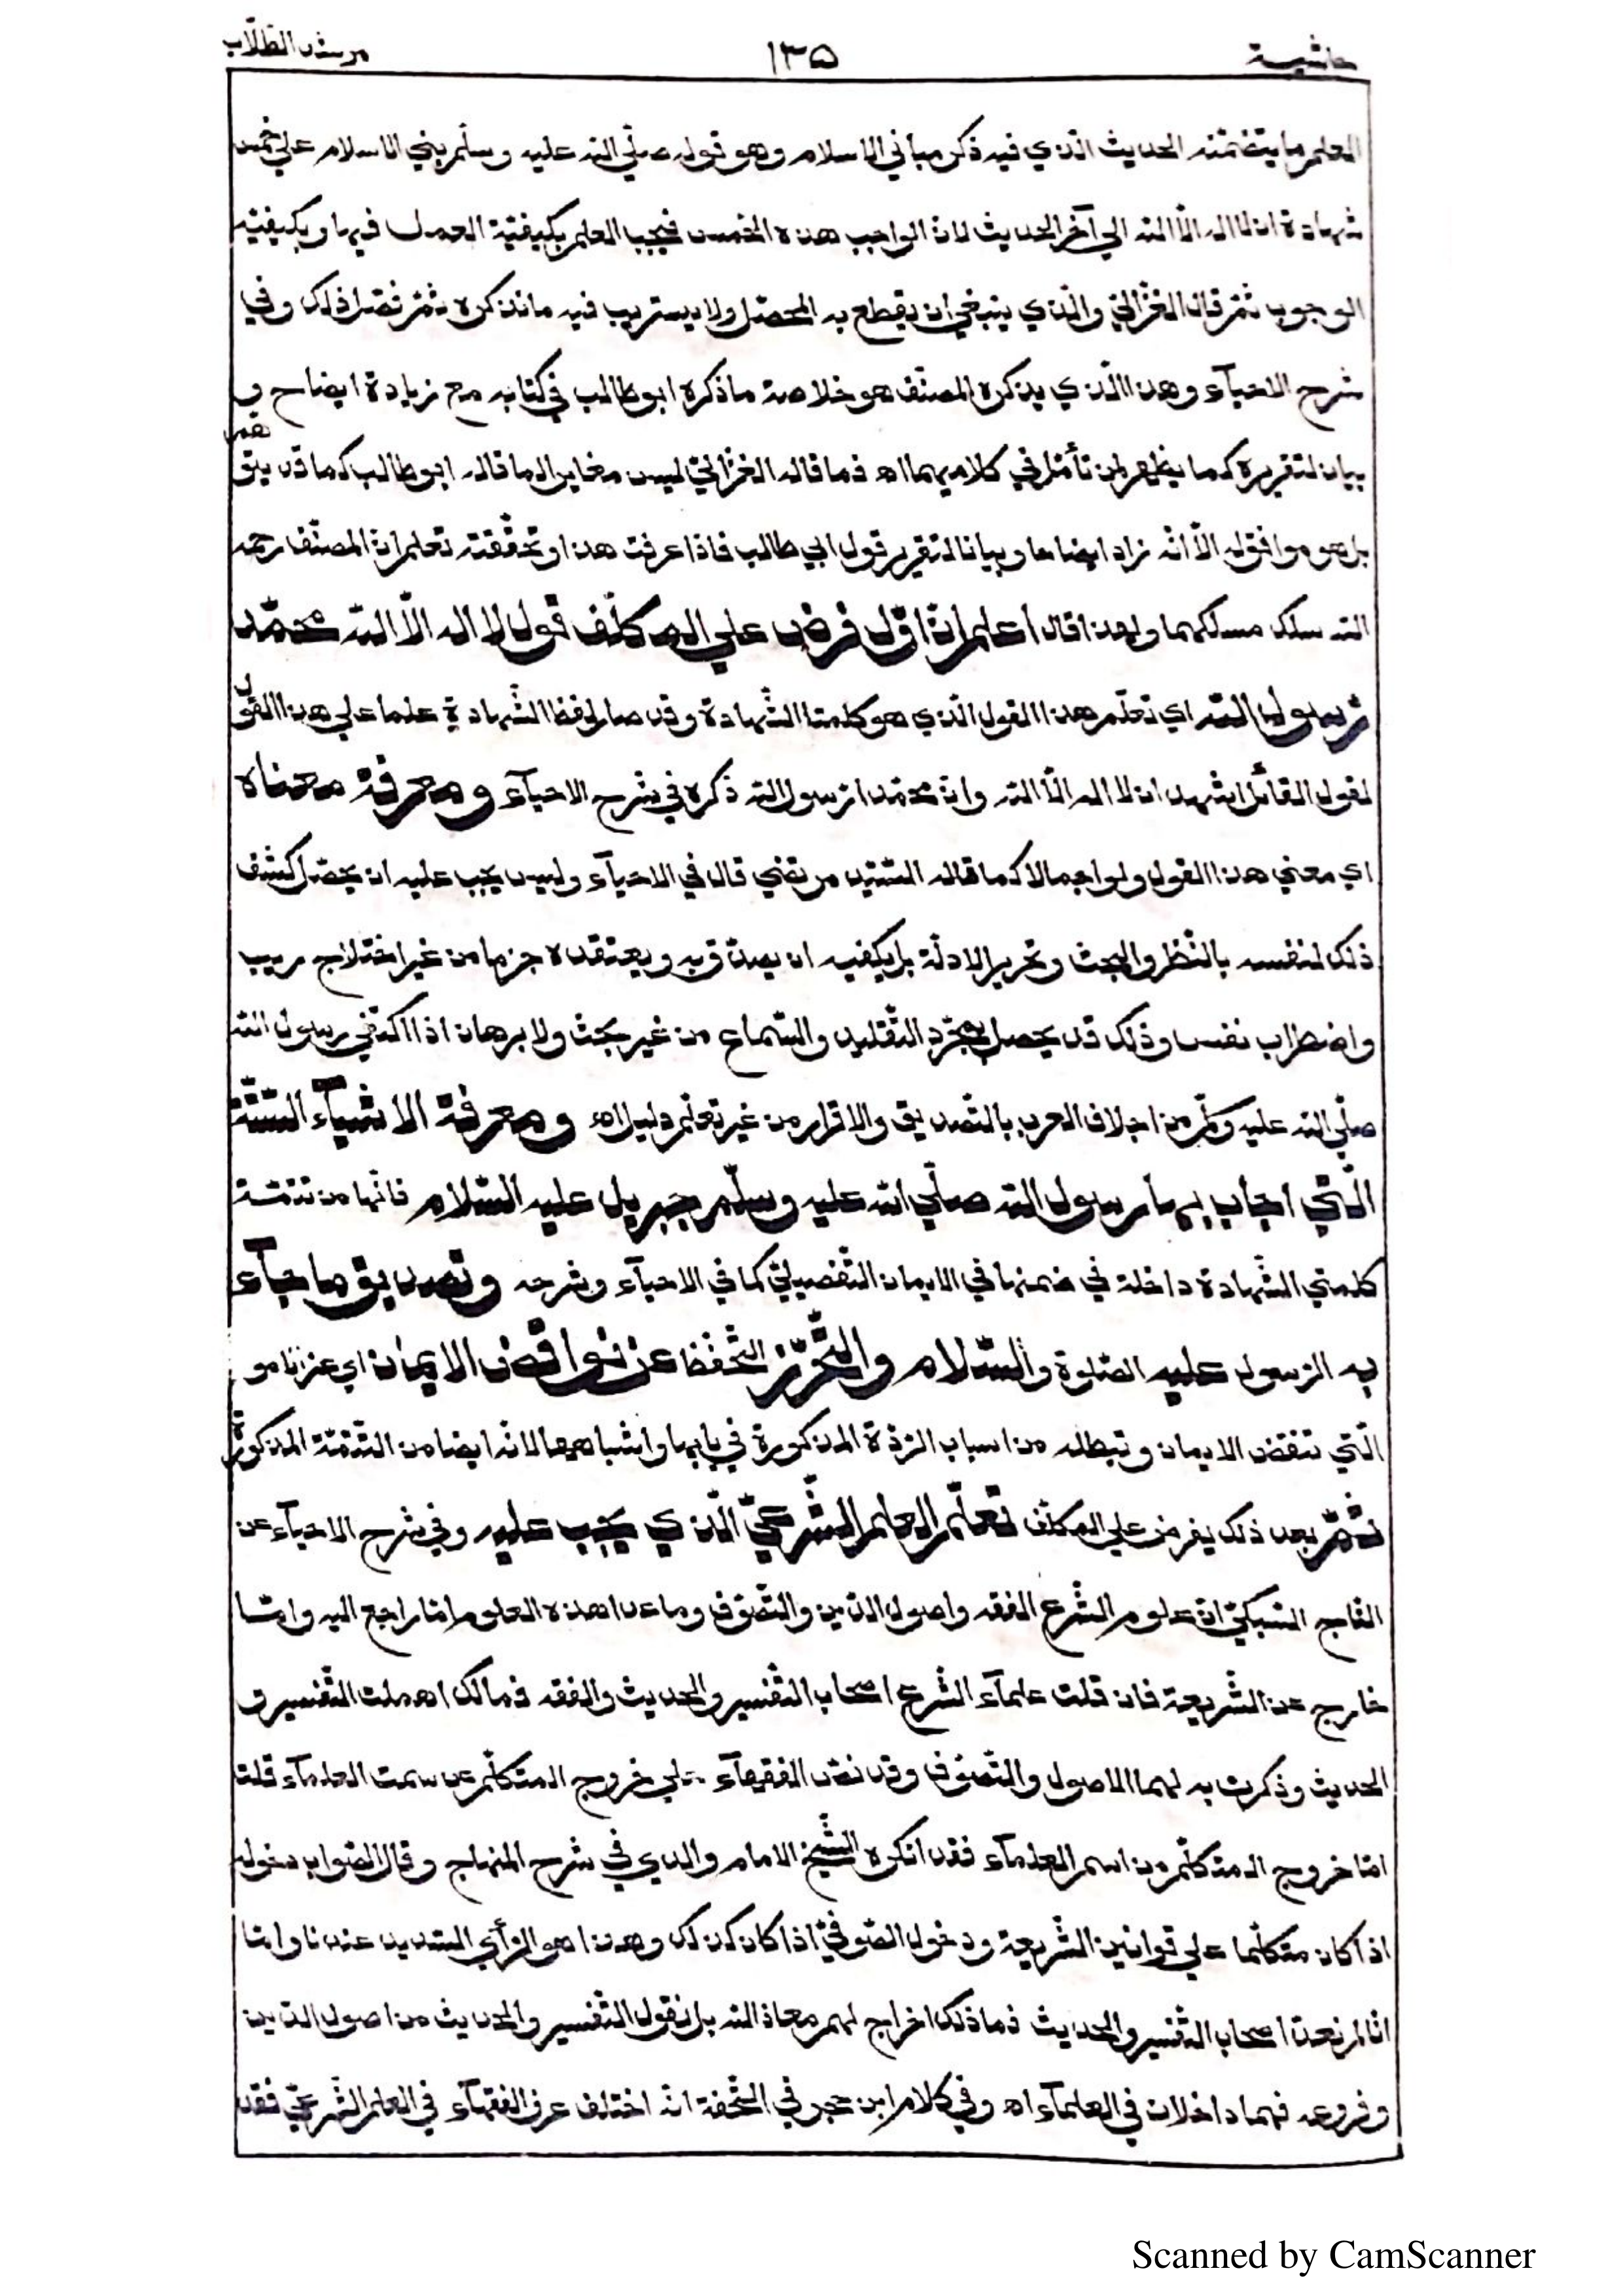 حاشية ١٣٥ مرشد الطلّاب
العلم ما يتضمّنه الحديث الذي فيه ذكر مباني الاسلام وهو قوله صلّي الله عليه وسلّم بني الاسلام علي خمس
شهادة ان لا اله الّا الله الي آخر الحديث لانّ الواجب هذه الخمس فيجب العلم بكيفيّة العمل فيها وبكيفيّة
الوجوب ثمّ قال الغزّاليّ والّذي ينبغي ان يقطع به المحصّل ولا يستريب فيه ما نذكره ثمّ نصّ ذلك وفي
شرح الاحيآء وهذا الّذي يذكره المصنّف هو خلاصة ما ذكره ابو طالب في كتابه مع زيادة ايضاح و
بيان لتقريره كما يظهر لمن تأمّل في كلاميهما اه فما قاله الغزّاليّ ليس مغاير الما قاله ابو طالب كما قد يتوهّم
بل هو موافق له الّا انّه زاد ايضاحا وبيانا لتقرير قول ابي طالب فاذا عرفت هذا وتحقّقته تعلم انّ المصنّف رحمه
الله سلك مسلكهما ولهذا قال اعلم انّ اوّل فرض علي المكلّف قول لا اله الّا الله محمّد
رسول الله اي تعلّم هذا القول الّذي هو كلمتا الشّهادة وقد صار لفظ الشّهادة علما علي هذا القول
لقول القائل اشهد ان لا اله الّا الله وانّ محمّدا رسول الله ذكره في شرح الاحيآء ومعرفة معناه
اي معني هذا القول ولو اجمالا كما قاله السّيّد مرتضي قال في الاحيآء وليس يجب عليه ان يحصّل كشف
ذلك لنفسه بالنّظر والبحث وتحرير الادلّة بل يكفيه ان يصدّق به ويعتقده جزما من غير اختلاج ريب
واضطراب نفس وذلك قد يحصل بمجرّد التّقليد والسّماع من غير بحث ولا برهان اذ اكتفي رسول الله
صلّي الله عليه وسلّم من اجلاف العرب بالتّصديق والاقرار من غير تعلّم دليل اه ومعرفة الاشيآء السّتّة
الّتي اجاب بها رسول الله صلّي الله عليه وسلّم جبريل عليه السّلام فانّها من تتمّة
كلمتي الشّهادة داخلة في ضمنها في الايمان التّفصيليّ كما في الاحيآء وشرحه وتصديق ما جآء
به الرّسول عليه الصّلوة والسّلام والتّحرّز التّحفّظ عن نواقض الايمان اي عن الامو
الّتي تنقض الايمان وتبطله من اسباب الرّدّة المذكورة في بابها واشباهها لانّه ايضا من التّتمّة المذكورة
ثمّ بعد ذلك يفرض علي المكلّف تعلّم العلم الشّرعيّ الّذي يجب عليه وفي شرح الاحيآء عن
التّاج السّبكيّ انّ علوم الشّرع الفقه واصول الدّين والتّصوّف وما عدا هذه العلوم امّا راجع اليه وامّا
خارج عن الشّريعة فان قلت علمآء الشّرع اصحاب التّفسير والحديث والفقه فمالك اهملت التّفسير و
الحديث وذكرت بدلهما الاصول والتّصوّف وقد نصّ الفقهآء علي خروج المتكلّم عن سمت العلمآء قلت
امّا خروج المتكلّم من اسم العلمآء فقد انكره الشّيخ الامام والدي في شرح المنهاج وقال الصّواب دخوله
اذا كان متكلّما علي قوانين الشّريعة ودخول الصّوفيّ اذا كان كذلك وهذا هو الرّأي السّديد عندنا وامّا
انّا لم نعدّ اصحاب التّفسير والحديث فما ذلك اخراج لهم معاذ الله بل نقول التّفسير والحديث من اصول الدّين
وفروعه فهما داخلان في العلمآء اه وفي كلام ابن حجر في التّحفة انّه اختلف عرف الفقهآء في العلم الشّرعيّ فقد
Scanned by CamScanner